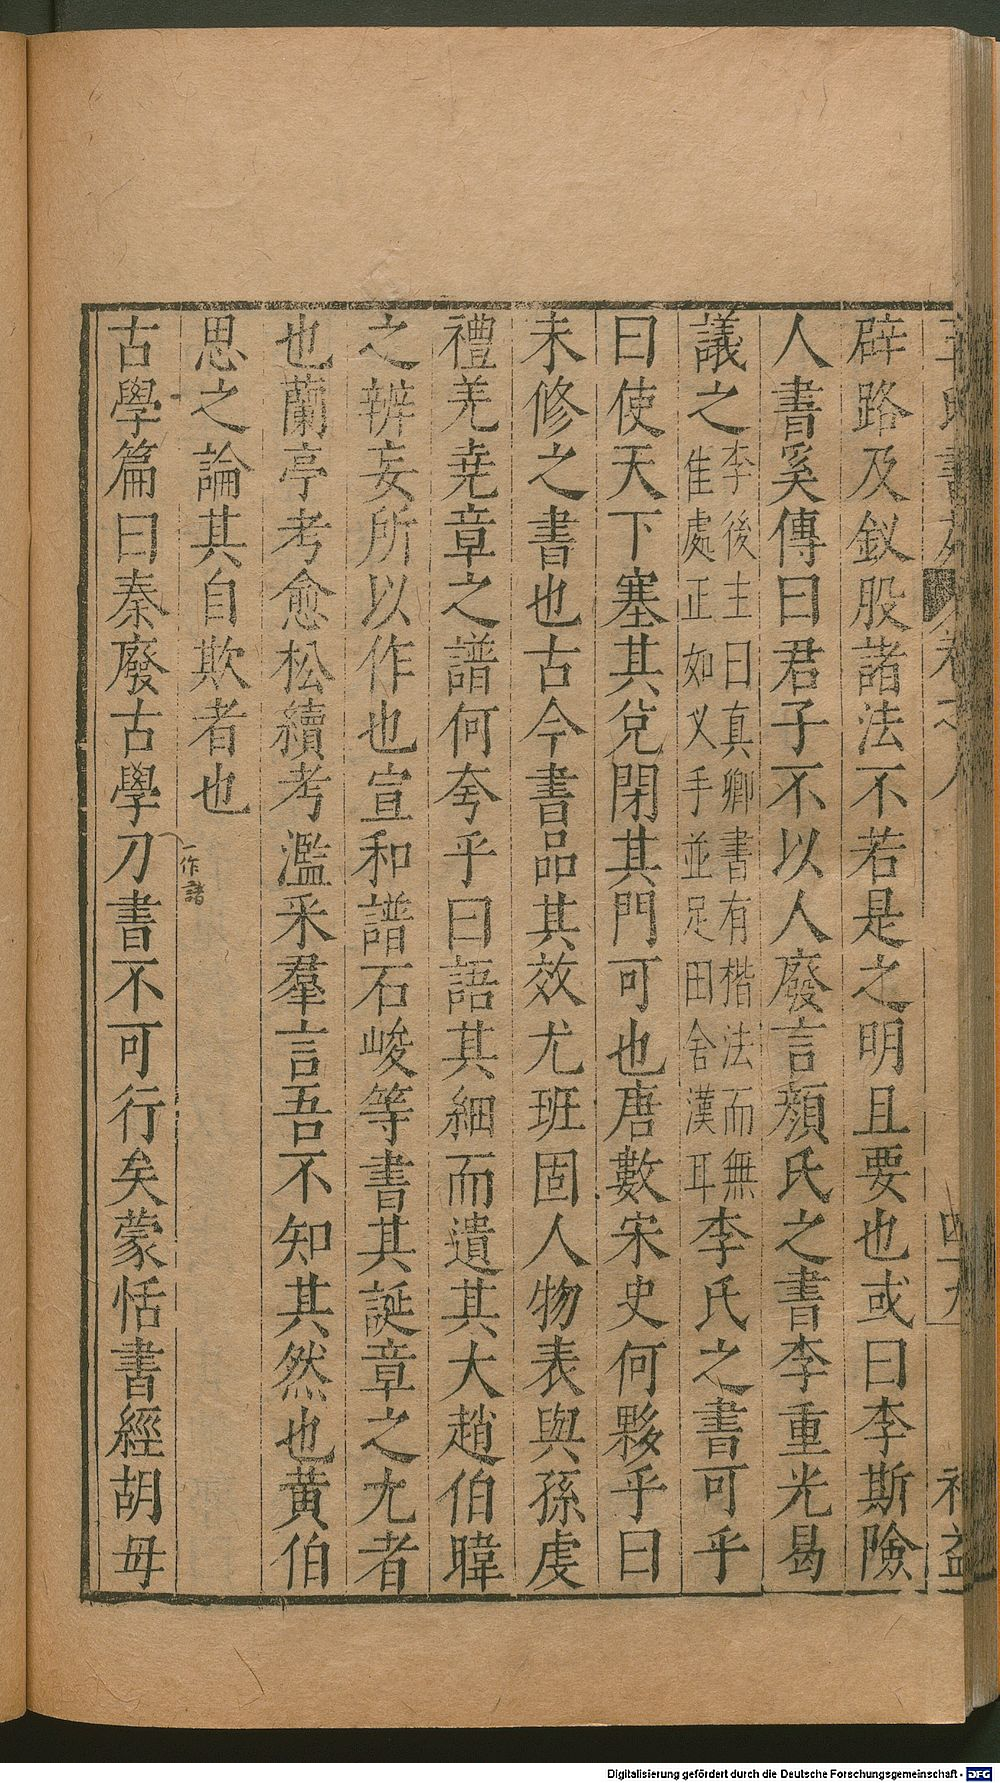 辟路及釵股諸法不若是之明且要也或曰李斯險
人書奚傳曰君子不以人廢言顏氏之書李重光曷
議之李後主曰真卿書有楷法而無
隹處正如义手並足田舍漢耳李氏之書可乎
曰使天下塞其兌閉其門可也唐數宋史何夥乎曰
未修之書也古今書品其效尤班固人物表與孫虔
禮羌堯章之譜何夸乎曰語其細而遺其大趙伯暐
之辨妄所以作也宣和譜石峻等書其誕章之尤者
也蘭亭考愈松續考濫釆羣言吾不知其然也黃伯
思之論其自欺者也
一作諸
古學篇曰秦廢古學刀書不可行矣蒙恬書經胡毋
Digitalisierung gefördert durch die Deutsche Forschungsgemeinschaft - DFG